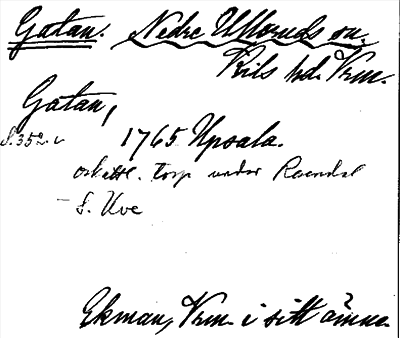 Gatan. Nedre Ulleruds sn.
Kils hd. Vrm.
Gatan,
S. 352.
1765 Upsala.
oskatt. torp under Rosendal
S. Uve
Ekman, Vrm. i sitt ämne